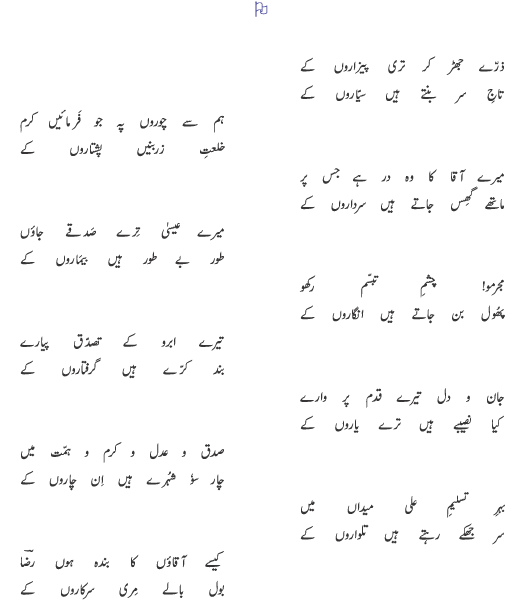 ذرّے جھڑ کر تری پیزاروں کے
تاجِ سر بنتے ہیں سیّاروں کے
ہم سے چوروں پہ جو فرمائیں کرم
خلعتِ زر بنیں پشتاروں کے
میرے آقا کا وہ در ہے جس پر
ماتھے گھِس جاتے ہیں سرداروں کے
میرے عیسیٰ تِرے صَدقے جاؤں
طور بے طور ہیں بیماروں کے
مجرمو! چشمِ تبسّم رکھو
پھُول بن جاتے ہیں انگاروں کے
تیرے ابرو کے تصدّق پیارے
بند کرّے ہیں گرفتاروں کے
جان و دل تیرے قدم پر وارے
کیا نصیبے ہیں ترے یاروں کے
صدق و عدل و کرم و ہمّت میں
چار سوٗ شہُرے ہیں اِن چاروں کے
بہرِ تسلیمِ علی میداں میں
سر جھکے رہتے ہیں تلواروں کے
کیسے آقاؤں کا بندہ ہوں رضؔا
بول بالے مِری سرکاروں کے